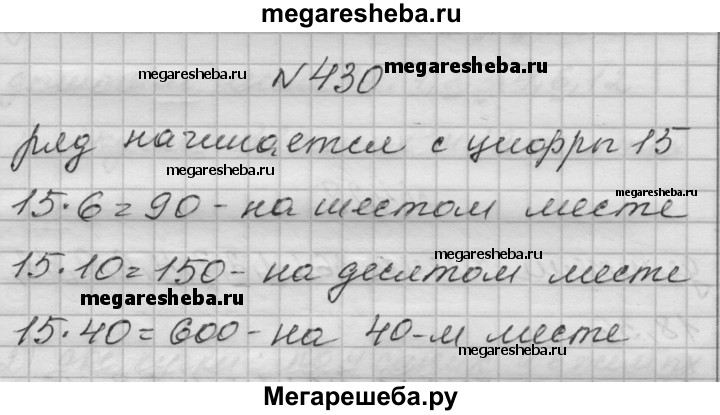 megaresheba.ru
№430
megaresheba.ru
megaresheba.ru
ряд начинается с цифры 15
megaresheba.ru
15·6=90 - на шестом месте
megaresheba.ru
15·10=150 - на десятом месте
megaresheba.ru
megaresheba.ru
15·40=600 - на 40-м месте
megaresheba.ru
Мегарешеба.ру